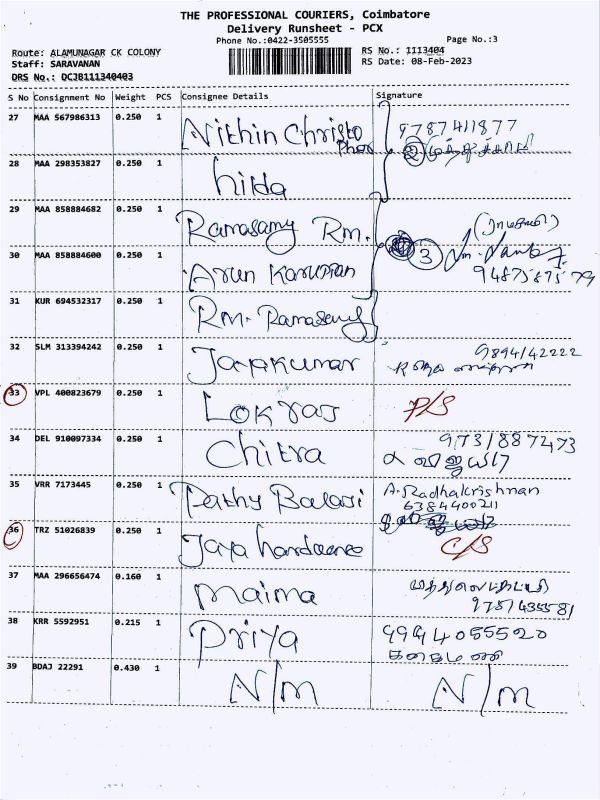 THE PROFESSIONAL COURIERS, Coimbatore
Delivery Runsheet - PCX
Phone No.:0422-3505555
Page No.:3
Route: ALAMUNAGAR CK COLONY
RS No.: 1113404
Staff: SARAVANAN
RS Date: 08-Feb-2023
DRS No.: DCJB111340403
S No Consignment No Weight PCS Consignee Details Signature
27 MAA 567986313 0.250 1 Nithin Christo 9787411877
2
28 MAA 298353827 0.250 1 hilda
29 MAA 858884682 0.250 1 Ramasamy Rm.
30 MAA 858884600 0.250 1 Arun Karuppan 3
31 KUR 694532317 0.250 1 Rm. Ramasamy
32 SLM 313394242 0.250 1 Jayakumar 9894142222
33 VPL 400823679 0.250 1 Lokraj P/S
34 DEL 910097334 0.250 1 Chitra
35 VRR 7173445 0.250 1 Pathy Balaji A. Radhakrishnan
6384400211
36 TRZ 51026839 0.250 1 Jaya C/S
37 MAA 296656474 0.160 1 maima
38 KRR 5592951 0.215 1 Priya 9994055520
39 BDAJ 22291 0.430 1 N/m N/m